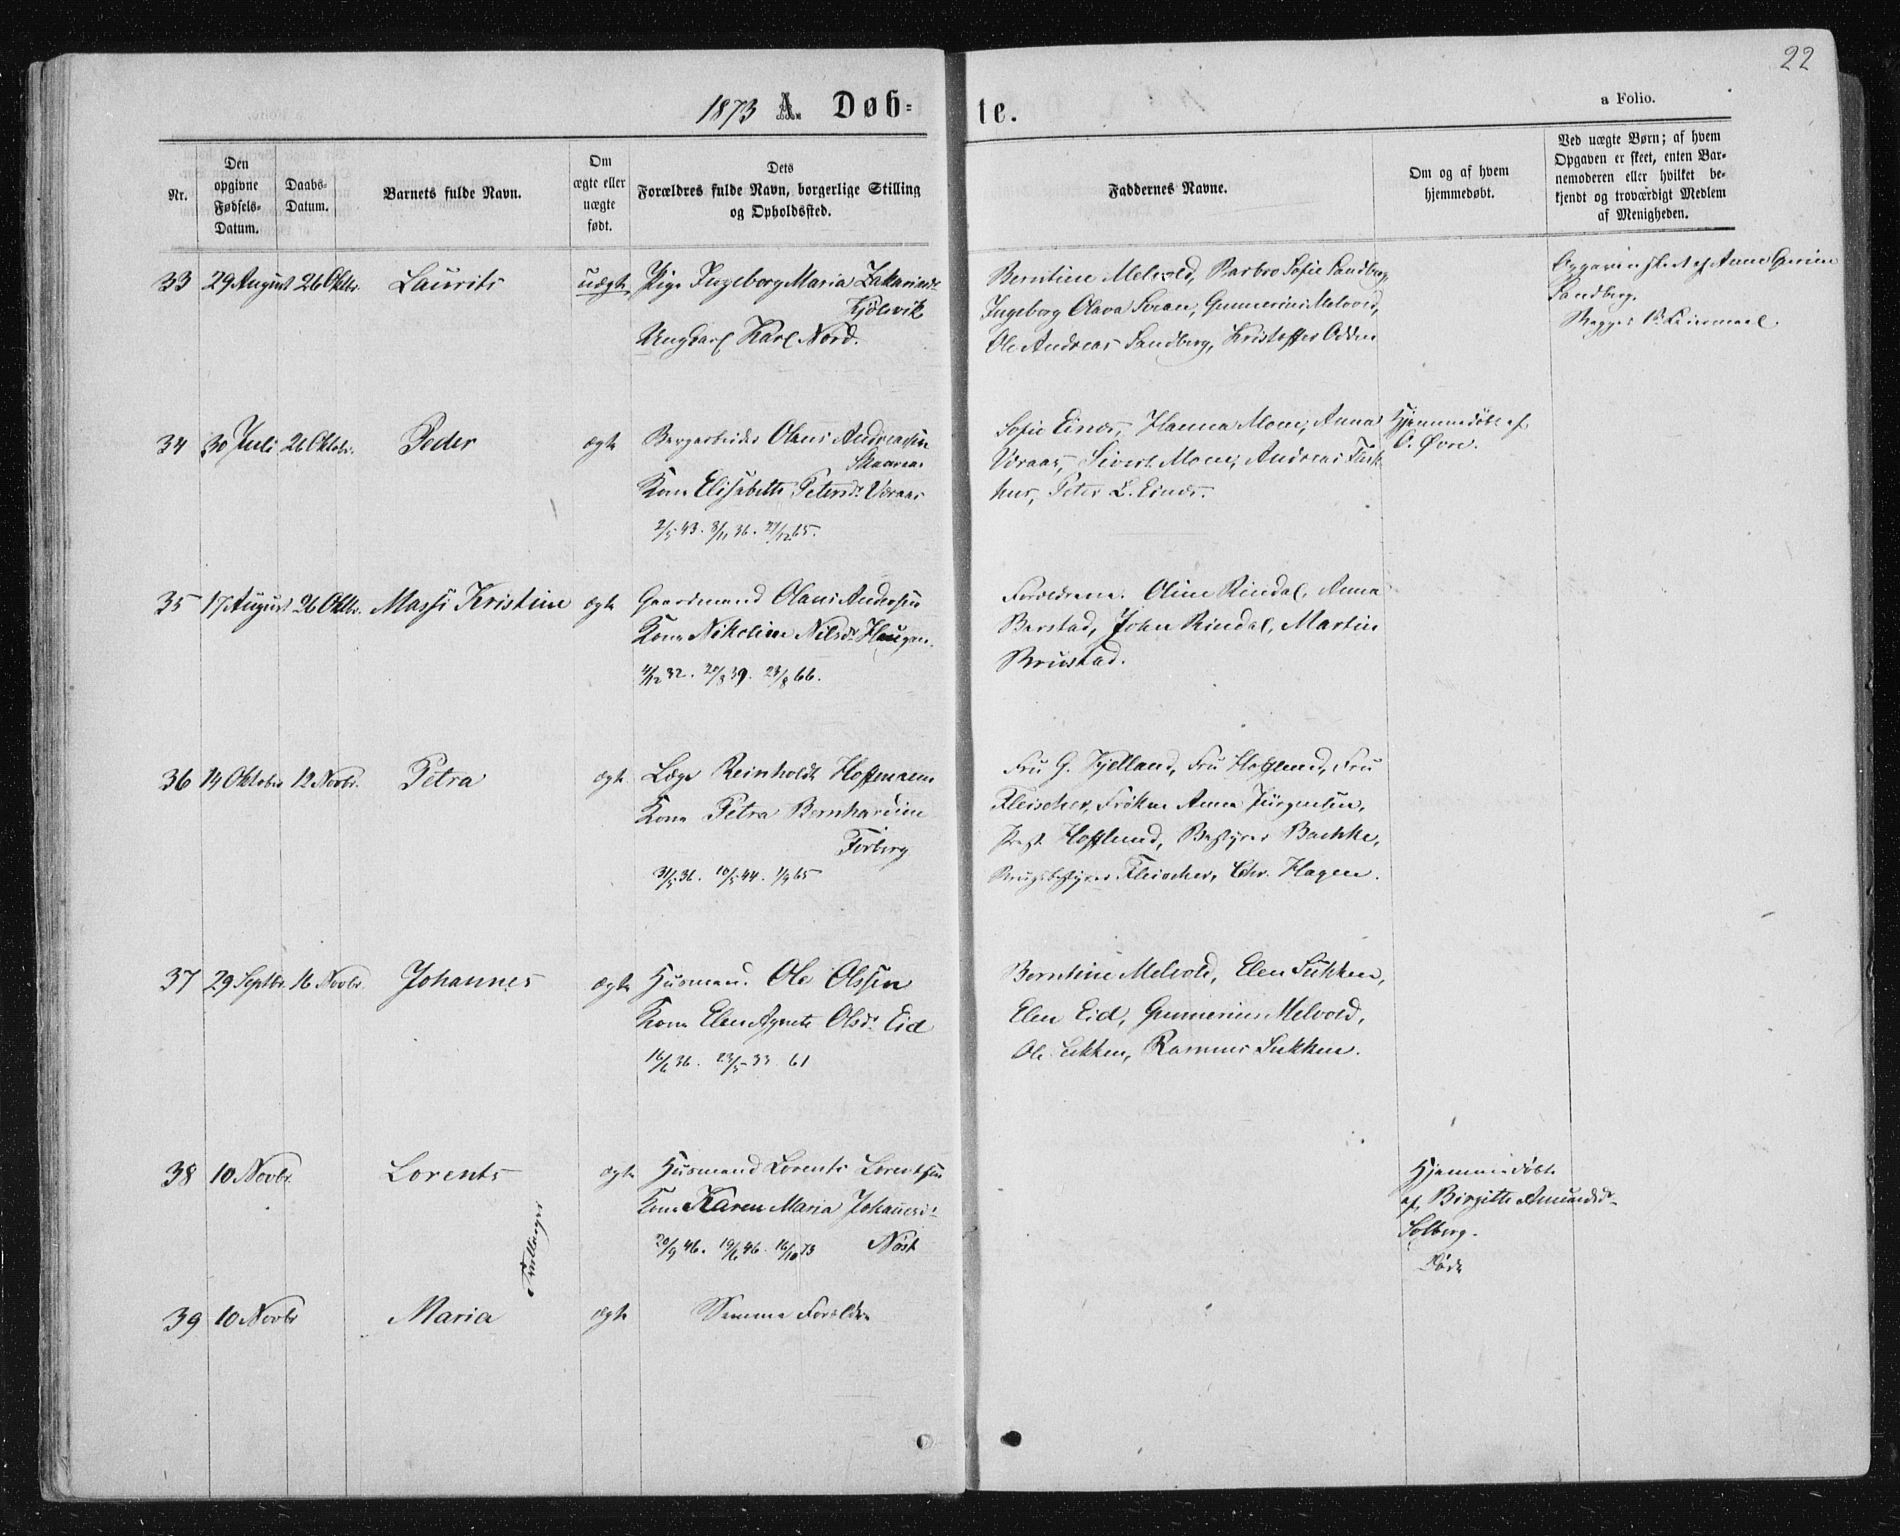 22
1873 A. Døb-
te.
a Folio.
Nr.
Den opgivne Fødsels-Datum.
Daabs-Datum.
Barnets fulde Navn.
Om ægte eller uægte født.
Dets Forældres fulde Navn, borgerlige Stilling og Opholdssted.
Faddernes Navne.
Om og af hvem hjemmedøbt.
Ved uægte Børn; af hvem Opgaven er skeet, enten Barnemoderen eller hvilket bekjendt og troværdigt Medlem af Menigheden.
33 29 August 26 Oktbr. Laurits uægte Pige Ingeborg Maria Zakariasdr
Kjølsvik
Ungkarl Karl Nord.
Berntine Melvold, Barbro Sofie Sandberg,
Ingeborg Olava Svean, Gunnerius Melvold,
Ole Andreas Sandberg, Kristoffer Odden
Sandberg.
34 30 Juli 26 Oktobr. Peder ægte Bergarbeider Olaus Andreassen
Kone Elisabeth Petersdr Ureaas
2/5 43. 8/11 36. 27/12 65.
Sofie Einer, Hanna Moen, Anna
Ureaas, Sivert Moen, Andreas
hus, Peter L. Einer.
Hjemmedøbt af
O. Øvre.
35 17 August 26 Oktbr. Massi Kristine ægte Gaardmand Olaus Andersen
Kone Nikoline Nilsdr Haugen.
4/12 32. 20/8 39. 23/8 66.
Forældrene. Oline Rindal, Anna
Barstad, John Rindal, Martin
36 14 Oktober 12 Novbr. Petra ægte Læge Reinholdt Hoffmann
Kone Petra Bernhardine
31/5 36. 10/5 44. 1/9 65
Fru G. Kjelland, Fru Hofflund, Fru
Fleischer, Frøken Anna Jürgensen,
Prest Hofflund, Bestyrer Bachke,
Brugsbestyrer Fleischer, Chr. Hagen.
37 29 Septbr. 16 Novbr. Johannes ægte Husmand Ole Olssen
Kone Elen Agnete Olsdr Eid
16/6 36. 23/5 33 61
Berntine Melvold, Elen Sukken,
Elen Eid, Gunnerius Melvold,
Ole Lukken, Rasmus Sukken.
38 10 Novbr. Lorents ægte Husmand Lorents Lorentsen
Kone Karen Maria Johannesdr
20/9 46. 19/6 46. 16/10 73 Nøst
Hjemmedøbt
af Birgitte Amundsdr
Solberg.
Døde
Tvillinger
39 10 Novbr Maria ægte Samme Forældre